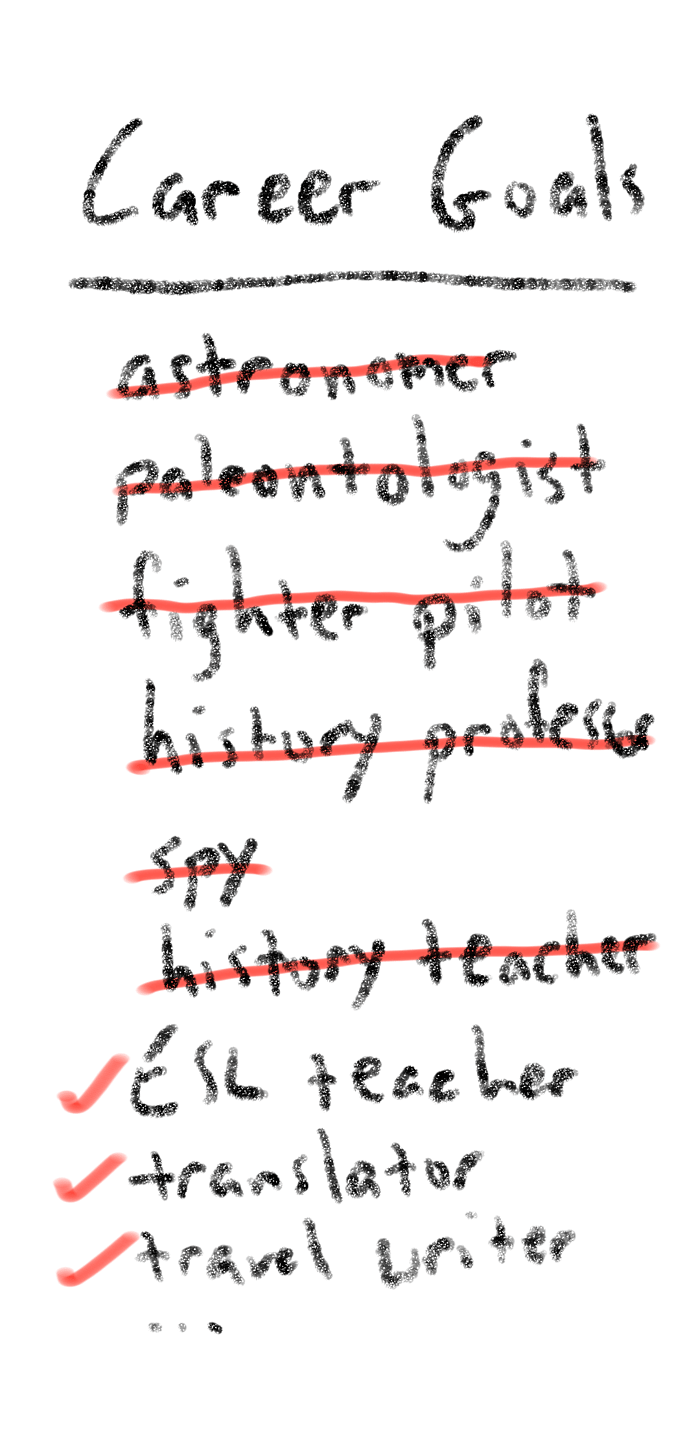 Career Goals
astronomer
paleontologist
fighter pilot
history professor
spy
history teacher
ESL teacher
translator
travel writer
...